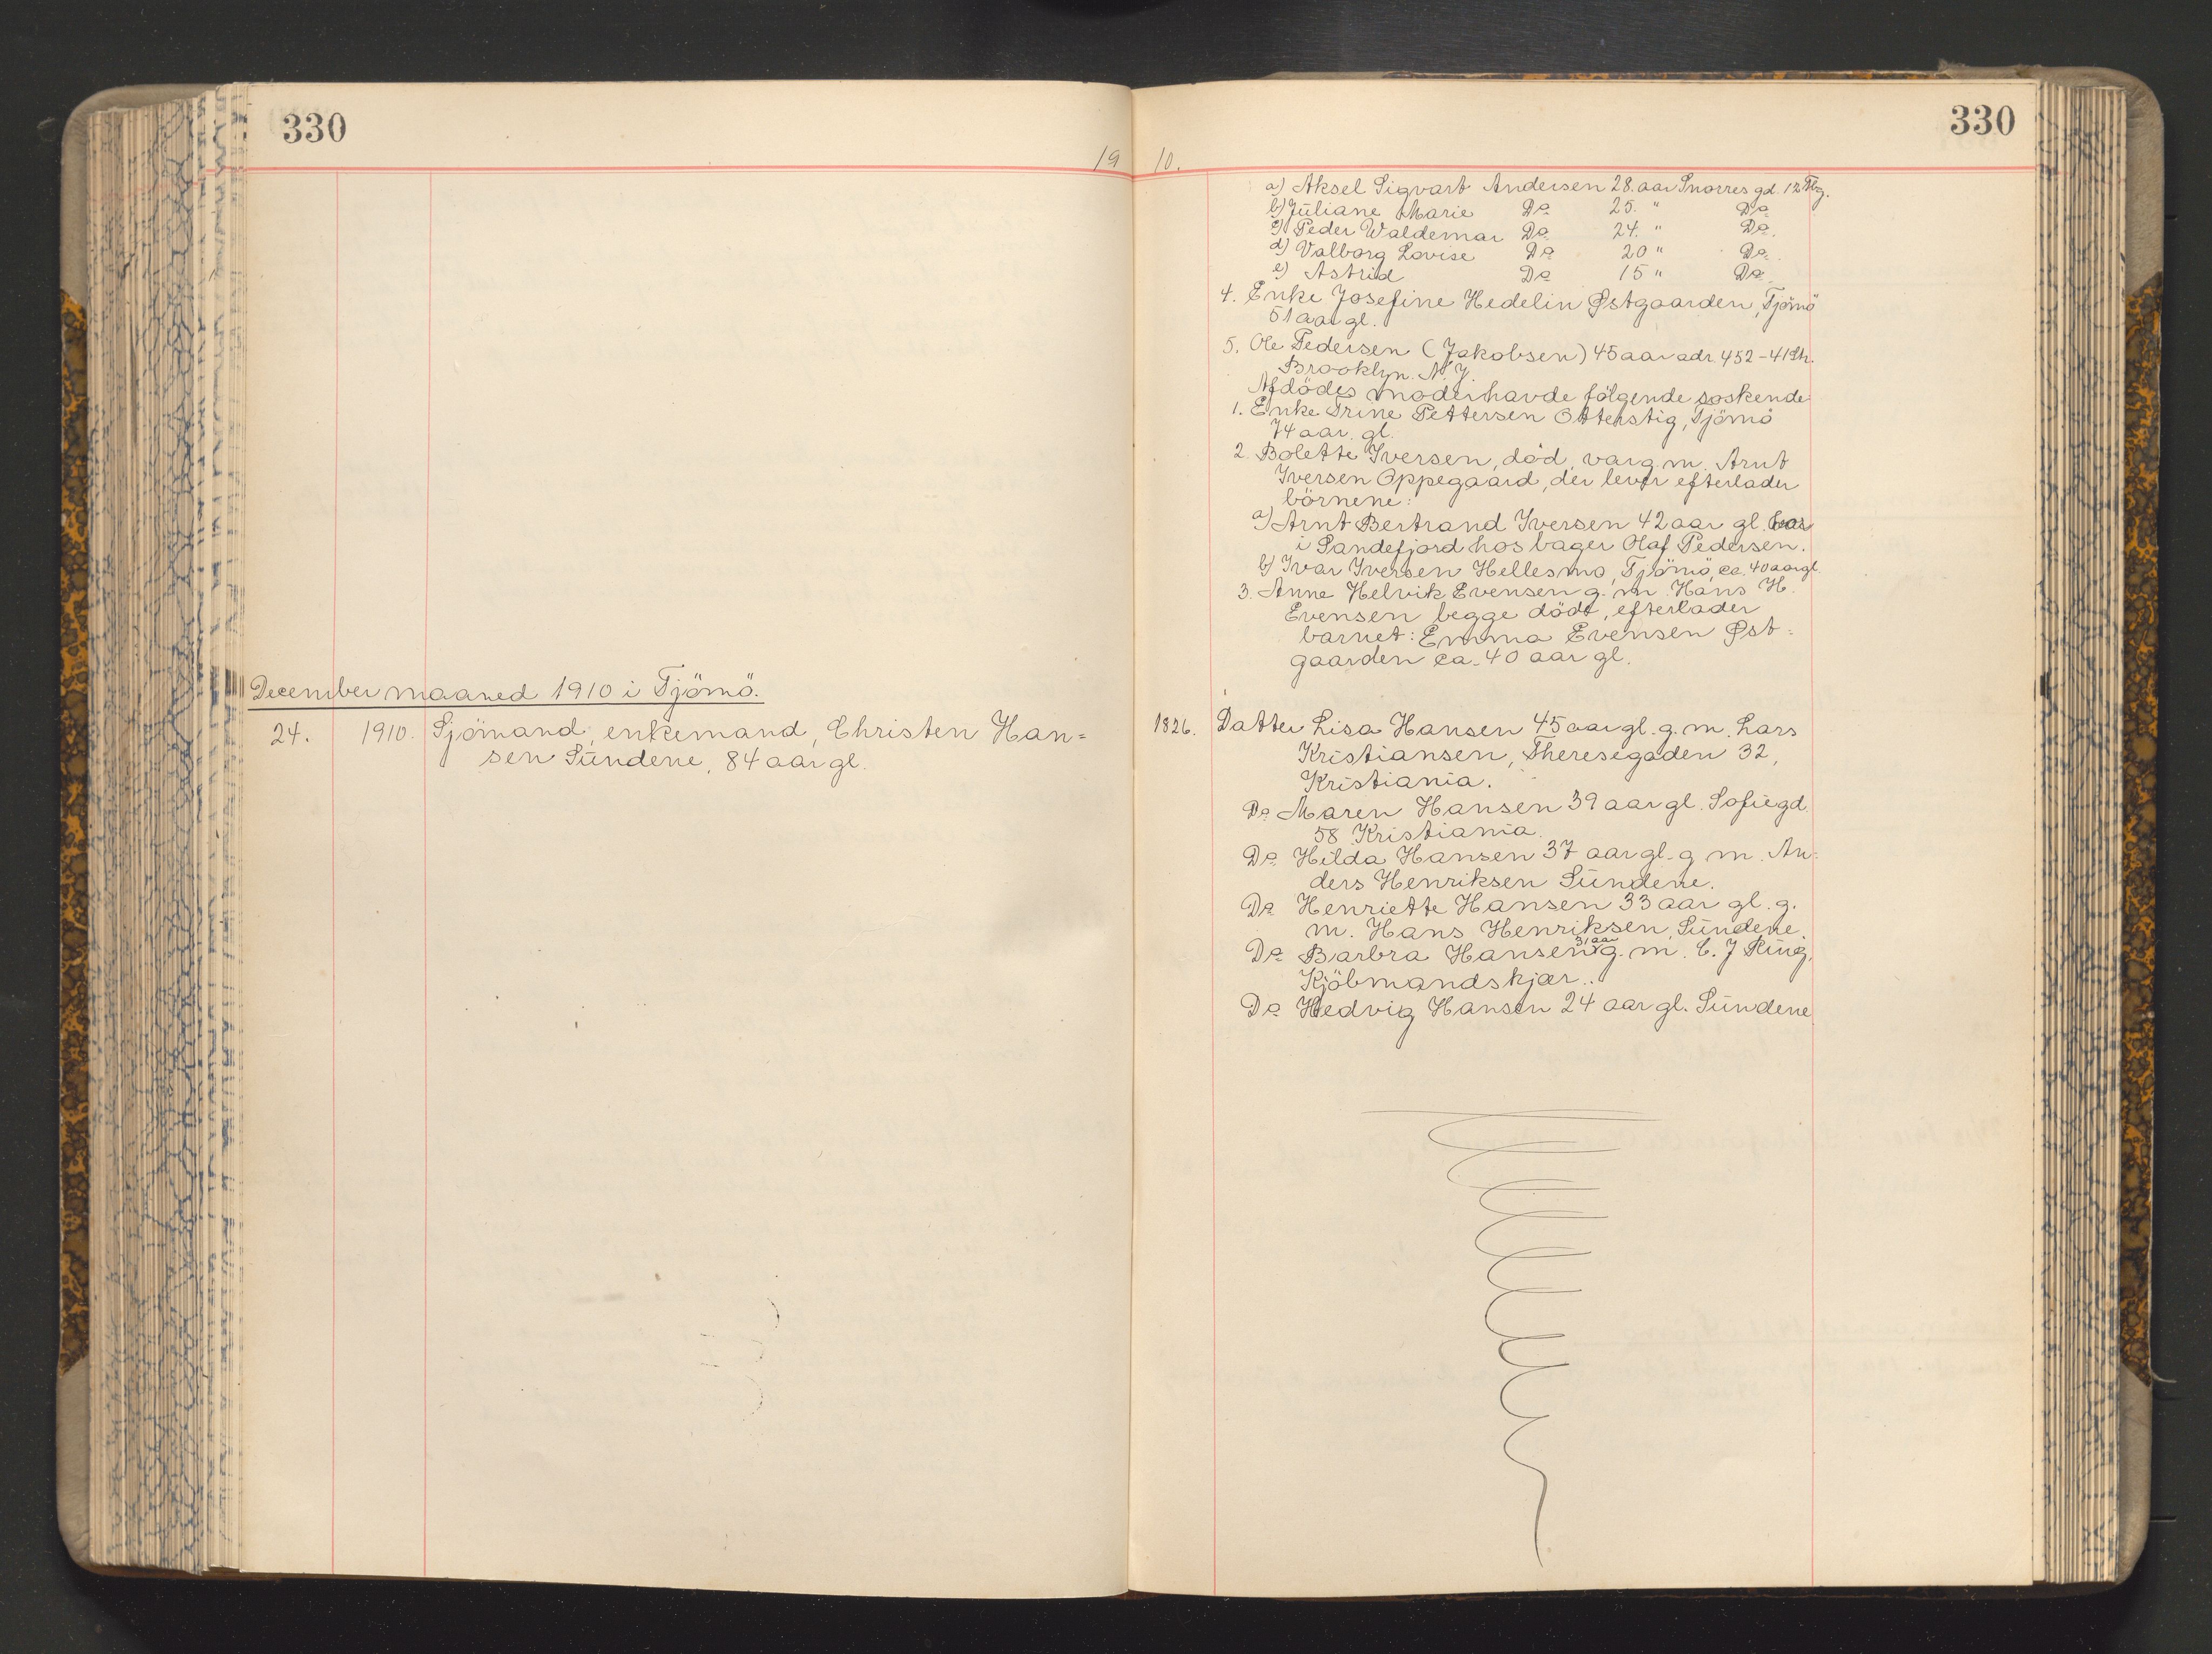 330
19
December maaned 1910 i Tjömö.
24. 1910. Sjömand, enkemand, Christen Han=
sen Sündene, 84 aar gl.
330
10.
a) Aksel Sigvart Andersen 28. aar Snorres gd. 12 Tbg.
b) Juliane Marie Do 25. " Do
c) Peder Waldemar Do 24. " Do.
d) Valborg Lovise Do 20 " Do.
e) Astrid Do 15 " Do.
4. Enke Josefine Hedelin Østgaarden, Tjömö
51 aar gl.
5. Ole Pedersen (Jakobsen) 45 aar adr. 452-41 Str.
Brooklyn. N. Y.
Afdödes moder havde fölgende soskende
1. Enke Trine Pettersen Otterstig, Tjömö
74 aar. gl.
2. Bolette Iversen, död, var g. m. Arnt
Iversen Oppegaard, der lever efterlader
börnene:
a) Arnt Bertrand Iversen 42 aar gl. bor
i Sandefjord hos bager Olaf Pedersen.
b) Ivar Iversen Hellesmo, Tjömö, ca. 40 aar gl.
3. Anne Helvik Evensen g. m. Hans H.
Evensen begge död, efterlader
barnet: Emma Evensen Øst=
gaarden ca. 40 aar gl.
1826. Datter Lisa Hansen 45 aar gl. g. m. Lars
Kristiansen, Theresegaden 32,
Kristiania.
Do Maren Hansen 39 aar gl. Sofiegd.
58 Kristiania.
Do Hilda Hansen 37 aar gl. g. m. An=
ders Henriksen Sündene.
Do Henriette Hansen 33 aar gl. g.
m. Hans Henriksen, Sündene.
Do Barbra Hansen 31 aar g. m. C. J
Kjöbmandskjær..
Do Hedvig Hansen 24 aar gl. Sündene.